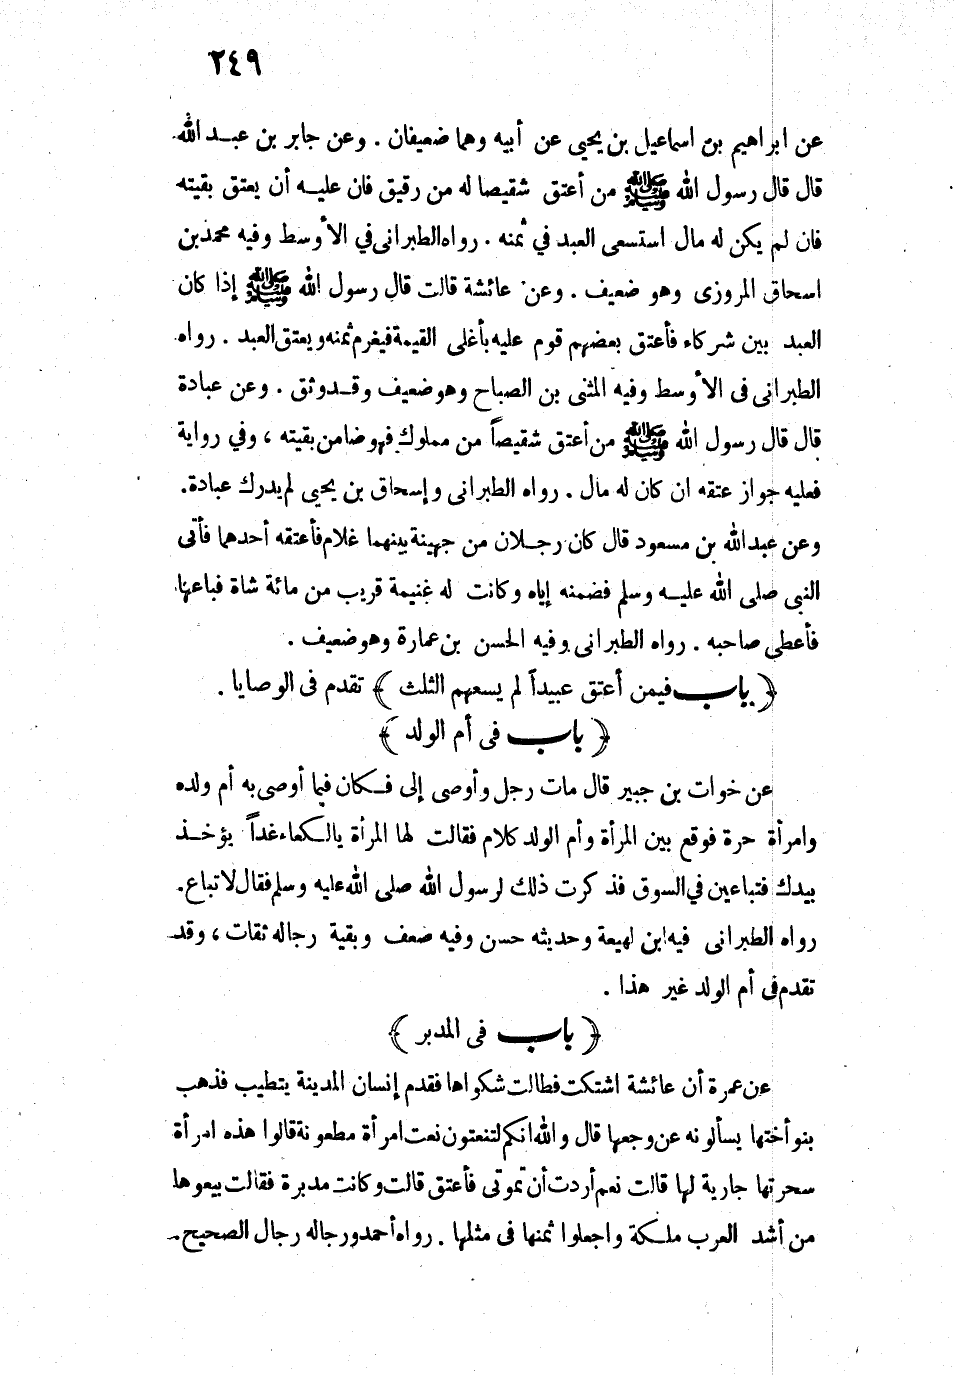 ٢٤٩
عن ابراهيم بن اسماعيل بن يحيى عن أبيه وهما ضعيفان . وعن جابر بن عبد الله
قال قال رسول الله ﷺ من أعتق شقيصا له من رقيق فان عليه أن يعتق بقيته
فان لم يكن له مال استسعى العبد في ثمنه . رواه الطبرانى في الأوسط وفيه محمد بن
اسحاق المروزى وهو ضعيف . وعن عائشة قالت قال رسول الله ﷺ إذا كان
العبد بين شركاء فأعتق بعضهم قوم عليه بأغلى القيمة فيغرم ثمنه ويعتق العبد . رواه
الطبرانى فى الأوسط وفيه المثنى بن الصباح وهو ضعيف وقد وثق . وعن عبادة
قال قال رسول الله ﷺ من أعتق شقيصاً من مملوك فهو ضامن بقيته ، وفي رواية
فعليه جواز عتقه ان كان له مال . رواه الطبرانى وإسحاق بن يحيى لم يدرك عبادة.
وعن عبد الله بن مسعود قال كان رجلان من جهينة بينهما غلام فأعتقه أحدهما فأتى
النبى صلى الله عليه وسلم فضمنه إياه وكانت له غنيمة قريب من مائة شاة فباعها
فأعطى صاحبه . رواه الطبرانى وفيه الحسن بن عمارة وهو ضعيف .
﴿ باب فيمن أعتق عبيداً لم يسعهم الثلث ﴾ تقدم فى الوصايا .
﴿ باب فى أم الولد ﴾
عن خوات بن جبير قال مات رجل وأوصى إلى فكان فيما أوصى به أم ولده
وامرأة حرة فوقع بين المرأة وأم الولد كلام فقالت لها المرأة يا لكعاء غداً يؤخذ
بيدك فتباعين في السوق فذكرت ذلك لرسول الله صلى الله عليه وسلم فقال لا تباع.
رواه الطبرانى فيه ابن لهيعة وحديثه حسن وفيه ضعف وبقية رجاله ثقات ، وقد
تقدم فى أم الولد غير هذا .
﴿ باب فى المدبر ﴾
عن عمرة أن عائشة اشتكت فطالت شكواها فقدم إنسان المدينة يتطيب فذهب
بنو أختها يسألونه عن وجعها قال والله انكم لتنعتون نعت امرأة مطعونة قالوا هذه امرأة
سحرتها جارية لها قالت نعم أردت أن تموتى فأعتق قالت وكانت مدبرة فقالت بيعوها
من أشد العرب ملكة واجعلوا ثمنها فى مثلها . رواه أحمد ورجاله رجال الصحيح .